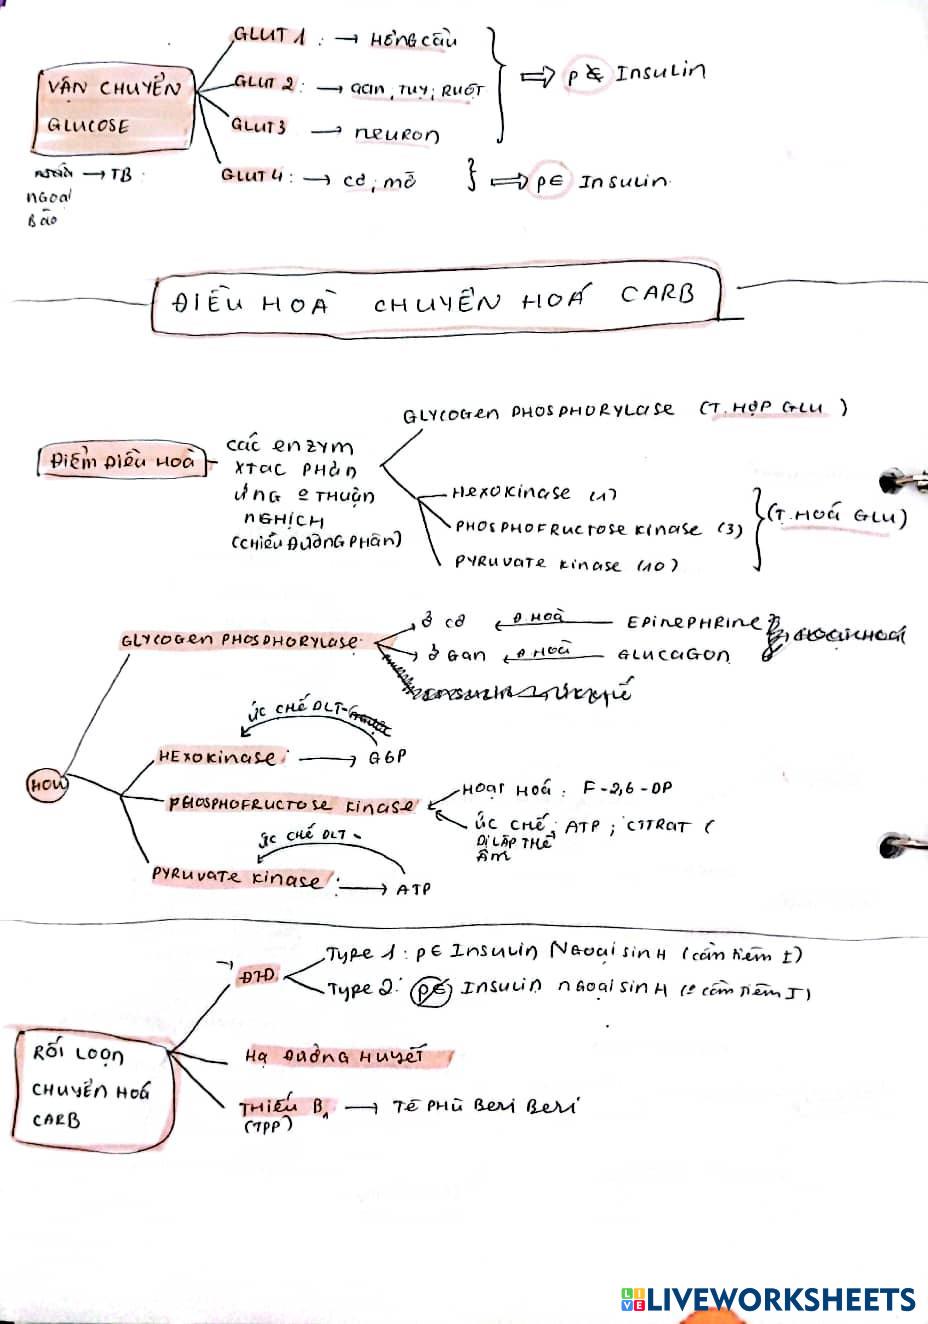 GLUT 1 : → HỒNG CẦU
VẬN CHUYỂN
GLUCOSE
GLUT 2 : → GAN, TUỴ, RUỘT
⇒ p ∉ Insulin
GLUT3 → neuron
GLUT4 : → cơ, mỡ } ⇒ p∈ Insulin
→ TB
NGOẠI
BÀO
ĐIỀU HOÀ CHUYỂN HOÁ CARB
GLYCOGEN PHOSPHORYLASE (T. HỢP GLU)
ĐIỂM ĐIỀU HOÀ
CÁC enzym
XTAC PHẢN
ỨNG O THUẬN
NGHỊCH
(CHIỀU ĐƯỜNG PHÂN)
HEXOKINASE (1)
PHOSPHOFRUCTOSE KINASE (3)
PYRUVATE KINASE (10)
(T. HOÁ GLU)
GLYCOGEN PHOSPHORYLASE:
Ở CƠ ← Đ.HOÀ EPINEPHRINE
Ở GAN ← Đ.HOÀ GLUCAGON
ỨC CHẾ DLT-
HOW
HEXOKINASE : → G6P
PHOSPHOFRUCTOSE KINASE
HOẠT HOÁ : F-2,6-DP
ỨC CHẾ : ATP ; CITRAT (
DỊ LẬP THỂ
ÂM
ỨC CHẾ DLT -
PYRUVATE KINASE : → ATP
→ ĐTĐ
TYPE 1 : p∈ Insulin NGOẠI SINH (cần tiêm I)
TYPE 2 : p∉ Insulin NGOẠI SINH (O cần tiêm I)
RỐI LOẠN
CHUYỂN HOÁ
CARB
HẠ ĐƯỜNG HUYẾT
THIẾU B1 → TÊ PHÙ Beri Beri
(TPP)
LIVEWORKSHEETS